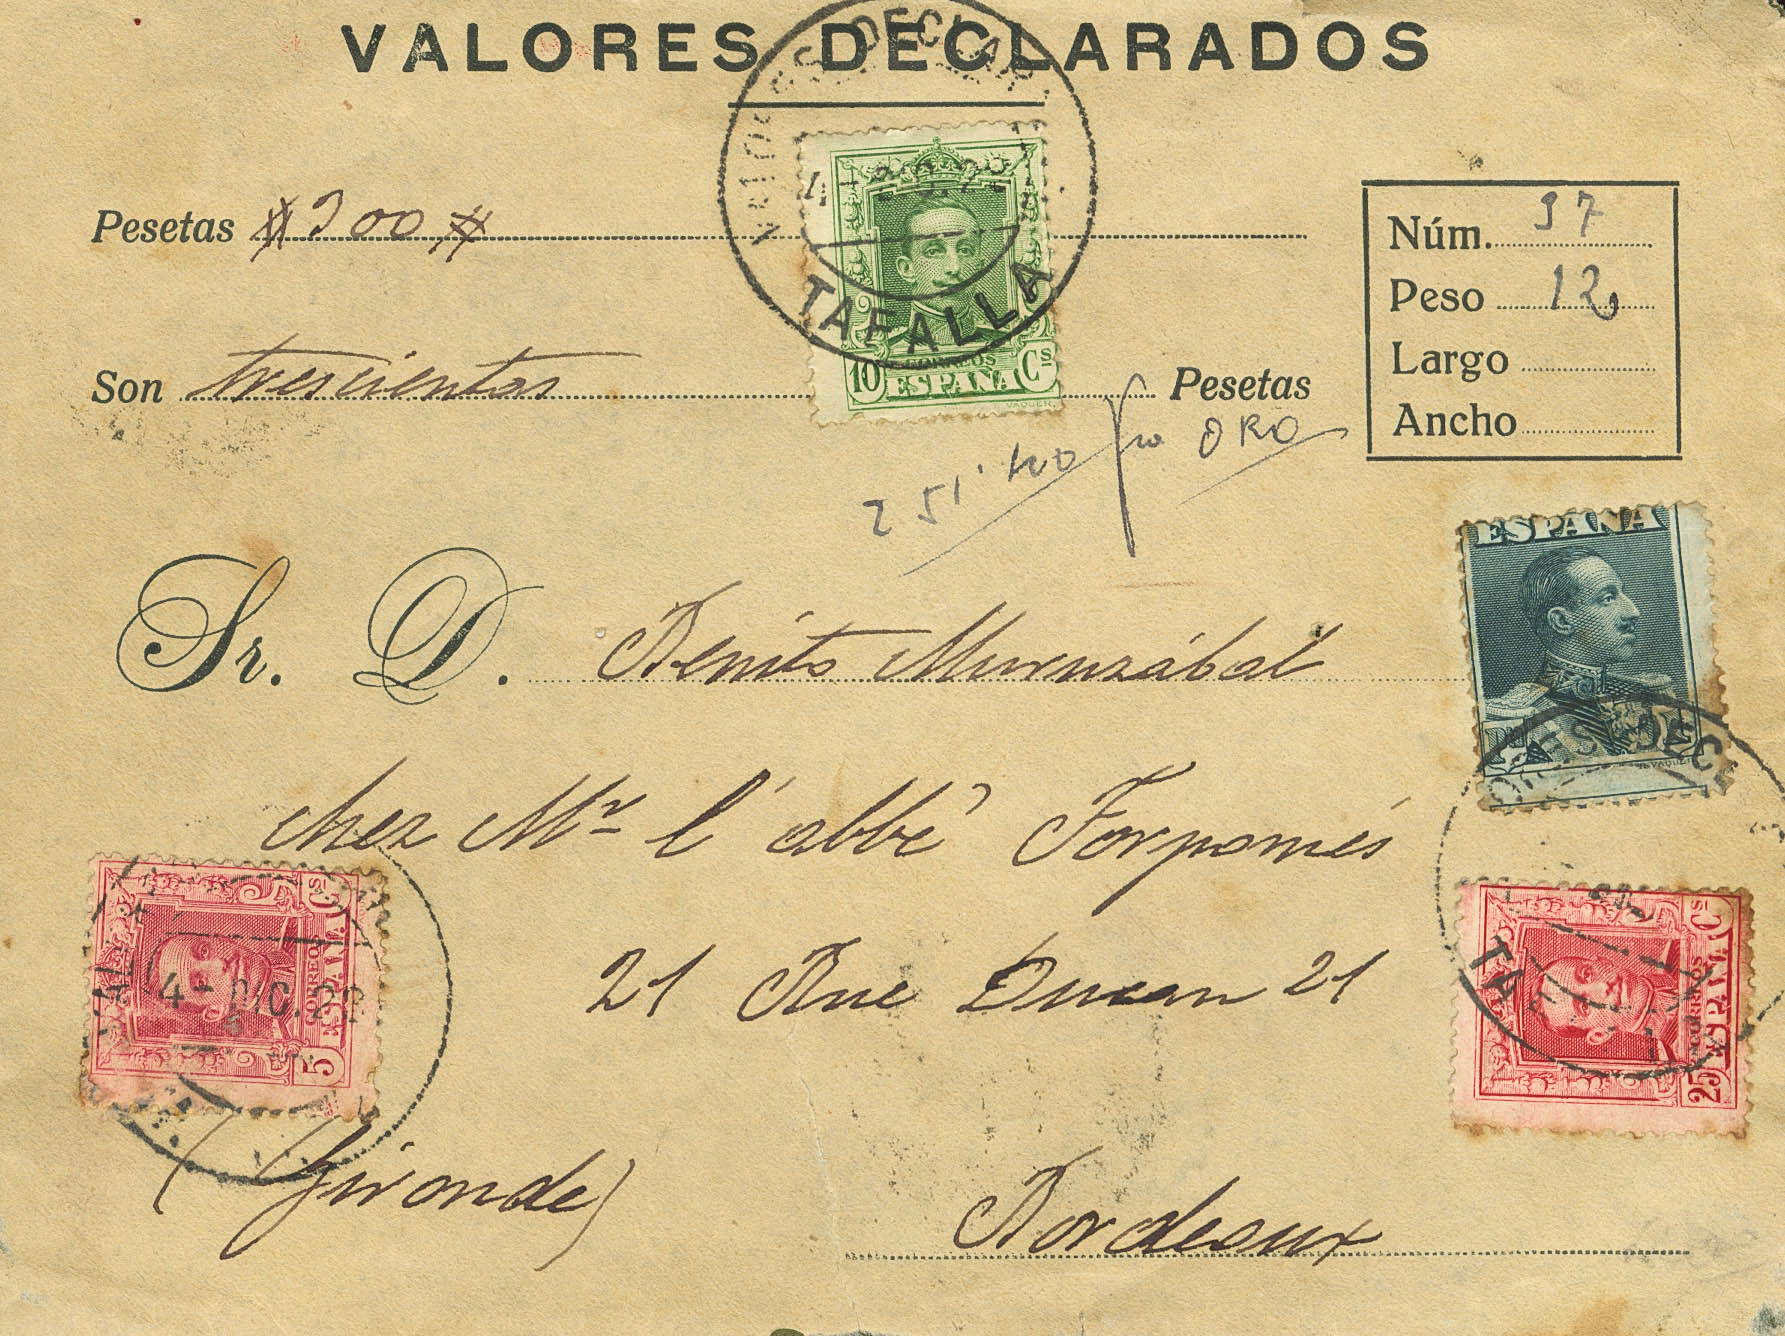 VALORES DECLARADOS
VALORES DECLAR
4- DIC.2
TAFALLA
10 CORREOS Cs
ESPAÑA
Pesetas #300#
Son trescientas Pesetas
251'40 fro ORO
Núm. 37
Peso 12
Largo
Ancho
ESPAÑA
Sr. D. Benito Muruzábal
chez Mr l'abbé Forpomés
21 Rue Ducau 21
(Gironde)
Bordeaux
5 CORREOS Cs
ESPAÑA
4- DIC.22
25 CORREOS Cs
ESPAÑA